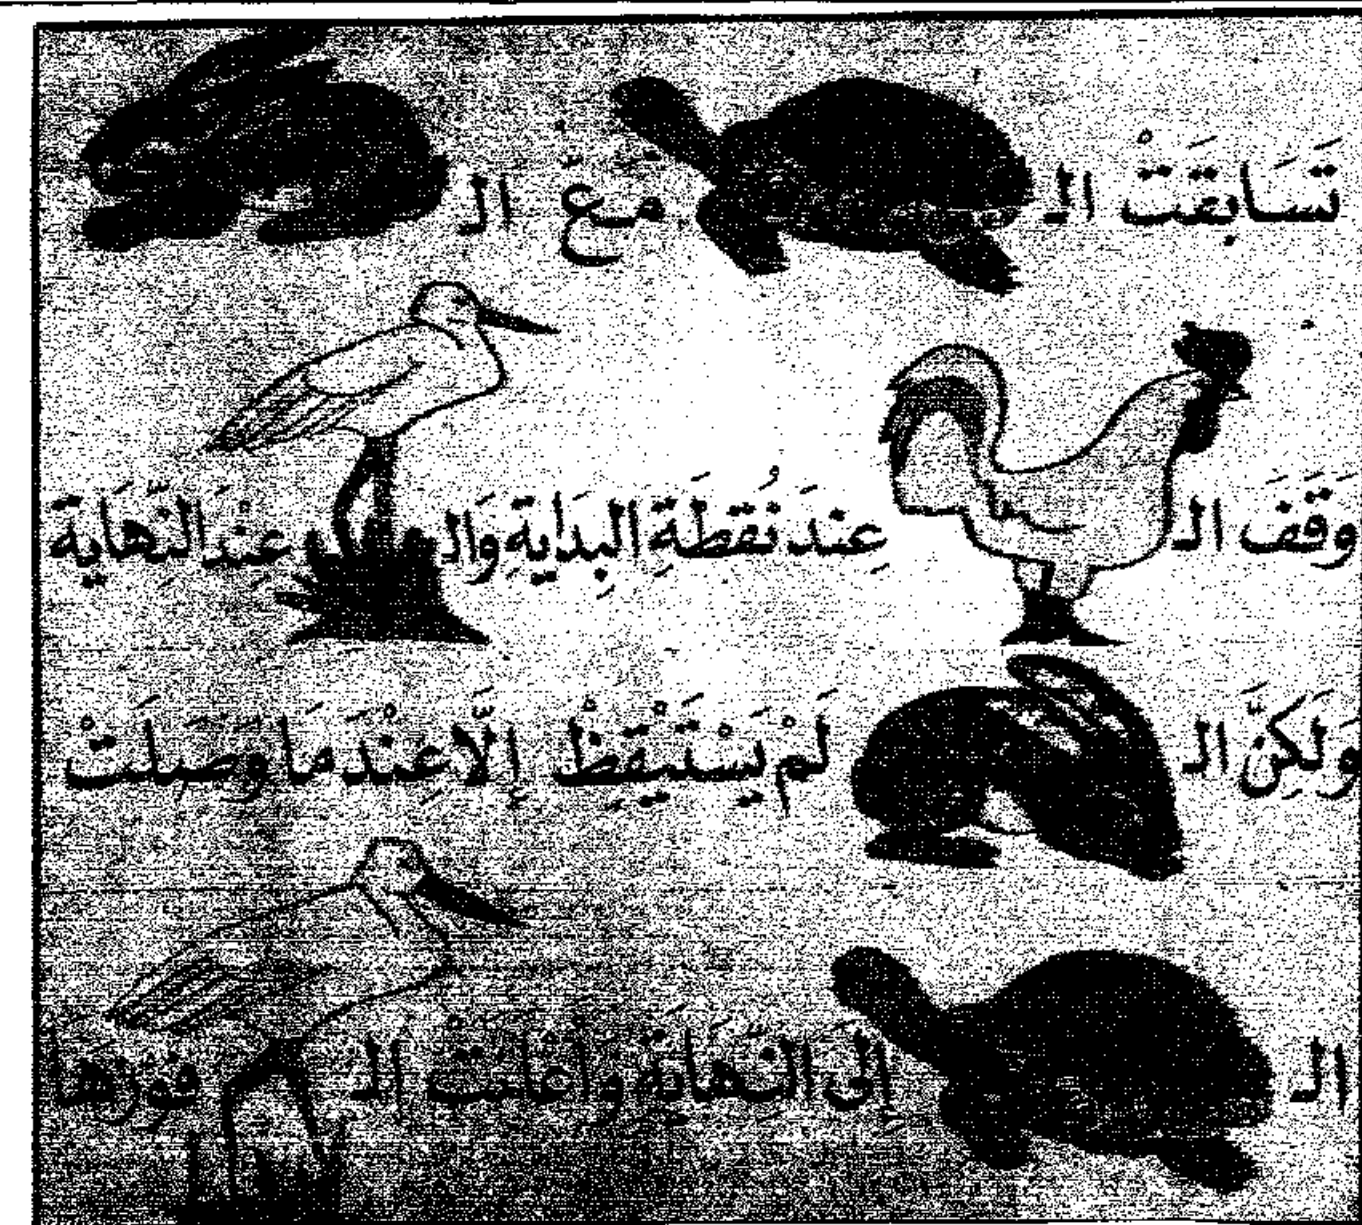 تَسَابَقَتْ الـ مَعَ الـ
وَقَفَ الـ عِندَ نُقطَةِ البِدَايَةِ وَالـ عِنْدَ النِّهَايَة
وَلَكِنَّ الـ لَمْ يَسْتَيْقِظْ إِلَّا عِنْدَمَا وَصَلَتْ
الـ إِلَى النِّهَايَةِ وَأَعْلَنَتْ الـ فَوْزَهَا